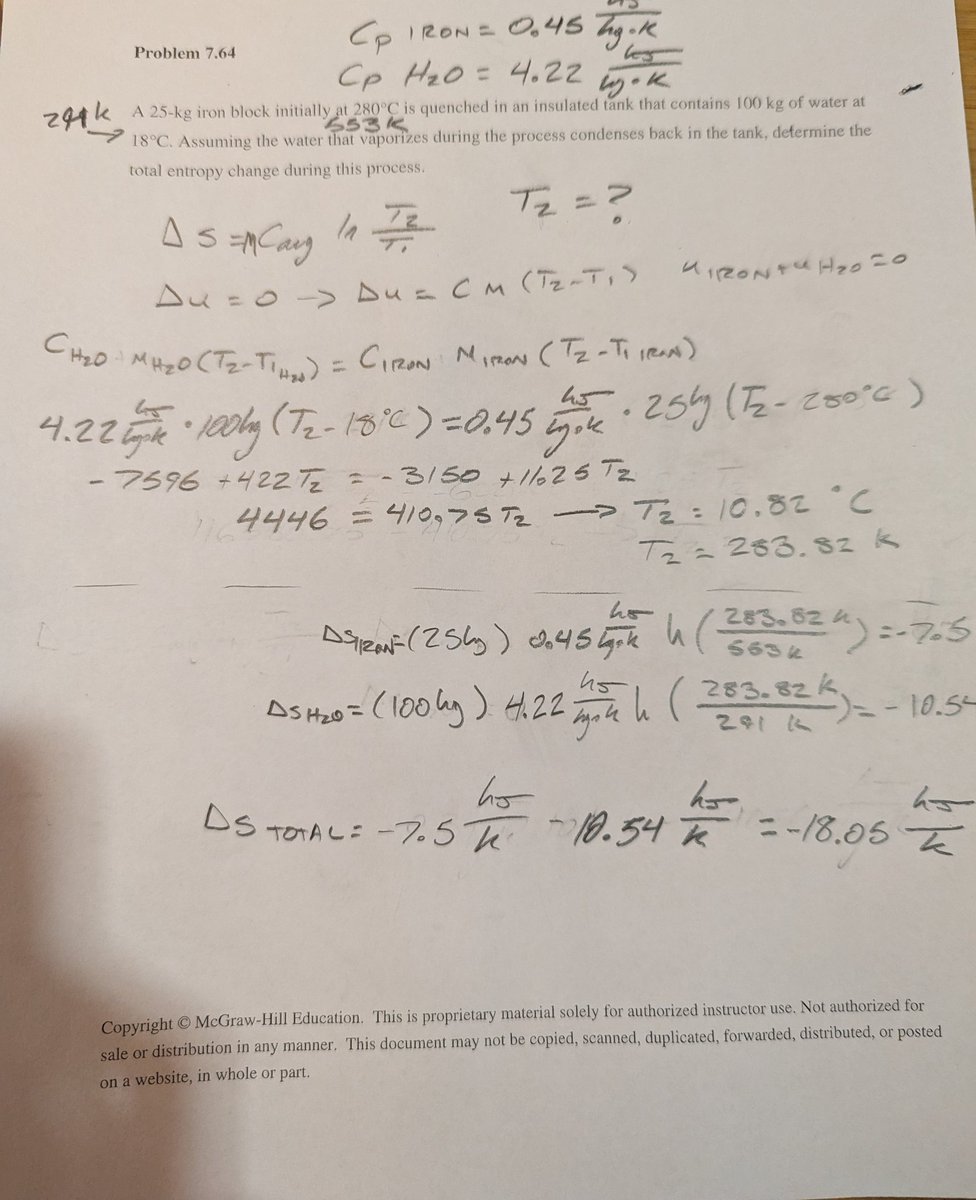 Cp IRON = 0.45 kJ/kg·K
Problem 7.64
Cp H2O = 4.22 kJ/kg·K
291K → A 25-kg iron block initially at 280°C is quenched in an insulated tank that contains 100 kg of water at
553 K
18°C. Assuming the water that vaporizes during the process condenses back in the tank, determine the
total entropy change during this process.
T2 = ?
ΔS = MCavg ln T2/T1
Δu = 0 → Δu = CM (T2-T1) u IRON + u H2O = 0
C H2O M H2O (T2-T1 H2O) = C IRON M IRON (T2-T1 IRAN)
4.22 kJ/kg·K · 100kg (T2-18°C) = 0.45 kJ/kg·K · 25kg (T2-280°C)
-7596 + 422T2 = -3150 + 11.25 T2
4446 = 410.75 T2 → T2 = 10.82 °C
T2 = 283.82 K
ΔS IRAN = (25kg) 0.45 kJ/kg·K ln (283.82 K/553 K) = -7.5
ΔS H2O = (100kg) 4.22 kJ/kg·K ln (283.82 K/291 K) = -10.54
ΔS TOTAL = -7.5 kJ/K - 10.54 kJ/K = -18.05 kJ/K
Copyright © McGraw-Hill Education. This is proprietary material solely for authorized instructor use. Not authorized for
sale or distribution in any manner. This document may not be copied, scanned, duplicated, forwarded, distributed, or posted
on a website, in whole or part.